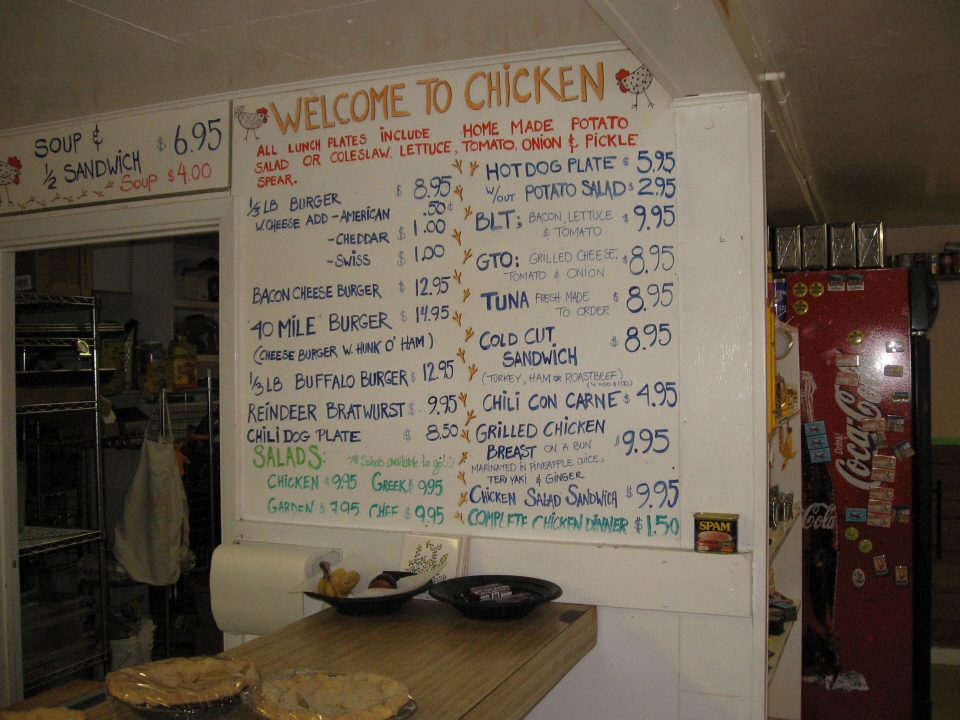 SOUP &
1/2 SANDWICH $ 6.95
Soup $4.00
WELCOME TO CHICKEN
ALL LUNCH PLATES INCLUDE HOME MADE POTATO
SALAD OR COLESLAW, LETTUCE, TOMATO, ONION & PICKLE
SPEAR.
1/3 LB BURGER $ 8.95
W. CHEESE ADD - AMERICAN .50¢
- CHEDDAR $ 1.00
- SWISS $ 1.00
BACON CHEESE BURGER $ 12.95
"40 MILE" BURGER $ 14.95
(CHEESE BURGER W. HUNK O' HAM)
1/3 LB BUFFALO BURGER $ 12.95
REINDEER BRATWURST $ 9.95
CHILI DOG PLATE $ 8.50
SALADS: -All Salads available to go!
CHICKEN $9.95 GREEK $9.95
GARDEN $ 7.95 CHEF $9.95
HOT DOG PLATE $ 5.95
W/OUT POTATO SALAD $ 2.95
BLT; BACON, LETTUCE $ 9.95
& TOMATO
GTO: GRILLED CHEESE, $8.95
TOMATO & ONION
TUNA FRESH MADE $ 8.95
TO ORDER
COLD CUT $ 8.95
SANDWICH
(TURKEY, HAM OR ROASTBEEF)
CHILI CON CARNE $ 4.95
GRILLED CHICKEN
BREAST ON A BUN $9.95
MARINATED IN PINEAPPLE JUICE,
TERIYAKI & GINGER
CHICKEN SALAD SANDWICH $9.95
COMPLETE CHICKEN DINNER $1.50
SPAM
DRINK
Coca-Cola
Cola